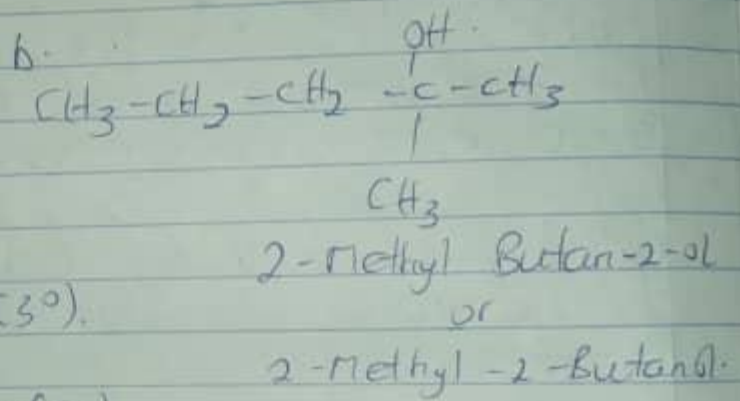 b.
OH.
CH3-CH2-CH2-C-CH3
CH3
2-Methyl Butan-2-ol
(3°).
or
2-Methyl-2-Butanol.